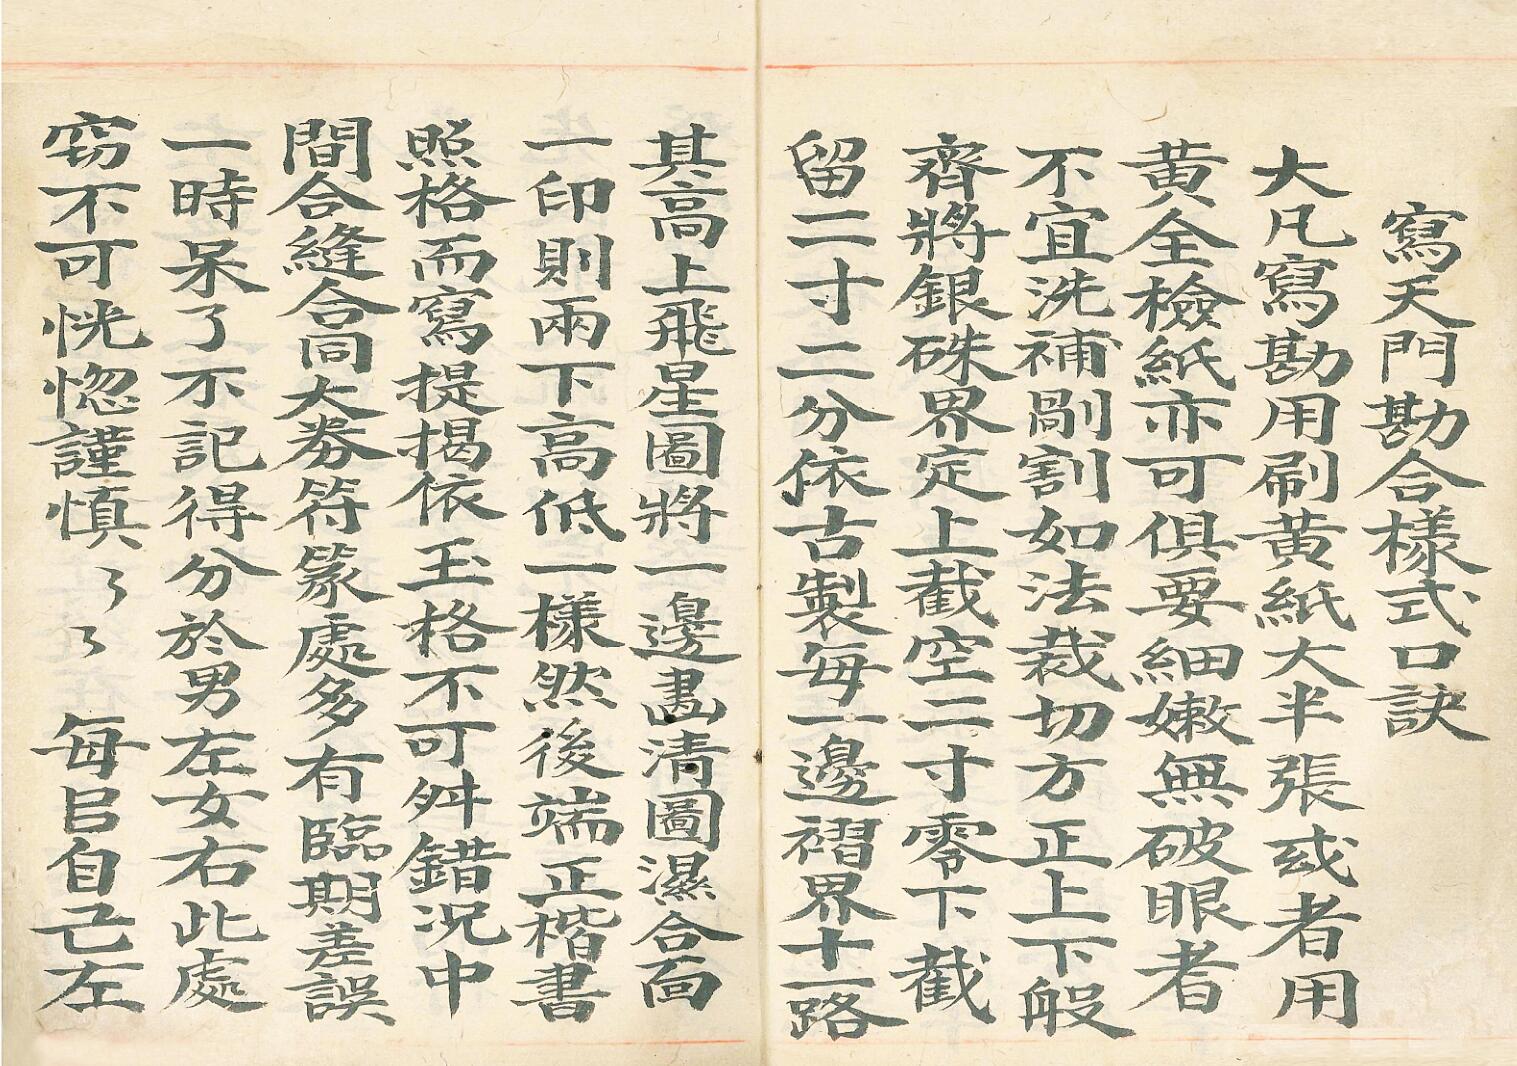 寫天門勘合樣式口訣
大凡寫勘用刷黃紙大半張或者用
黃全檢紙亦可俱要細嫩無破眼者
不宜洗補剮割如法裁切方正上下般
齊將銀硃界定上截空二寸零下截
留二寸二分依古製每一邊褶界十一路
其高上飛星圖將一邊畫清圖濕合面
一印則兩下高低一樣然後端正楷書
照格而寫提掲依玉格不可舛錯况中
間合縫合同大劵符篆處多有臨期差誤
一時呆了不記得分於男左女右此處
窃不可恍惚謹慎々々 每㠯自己左